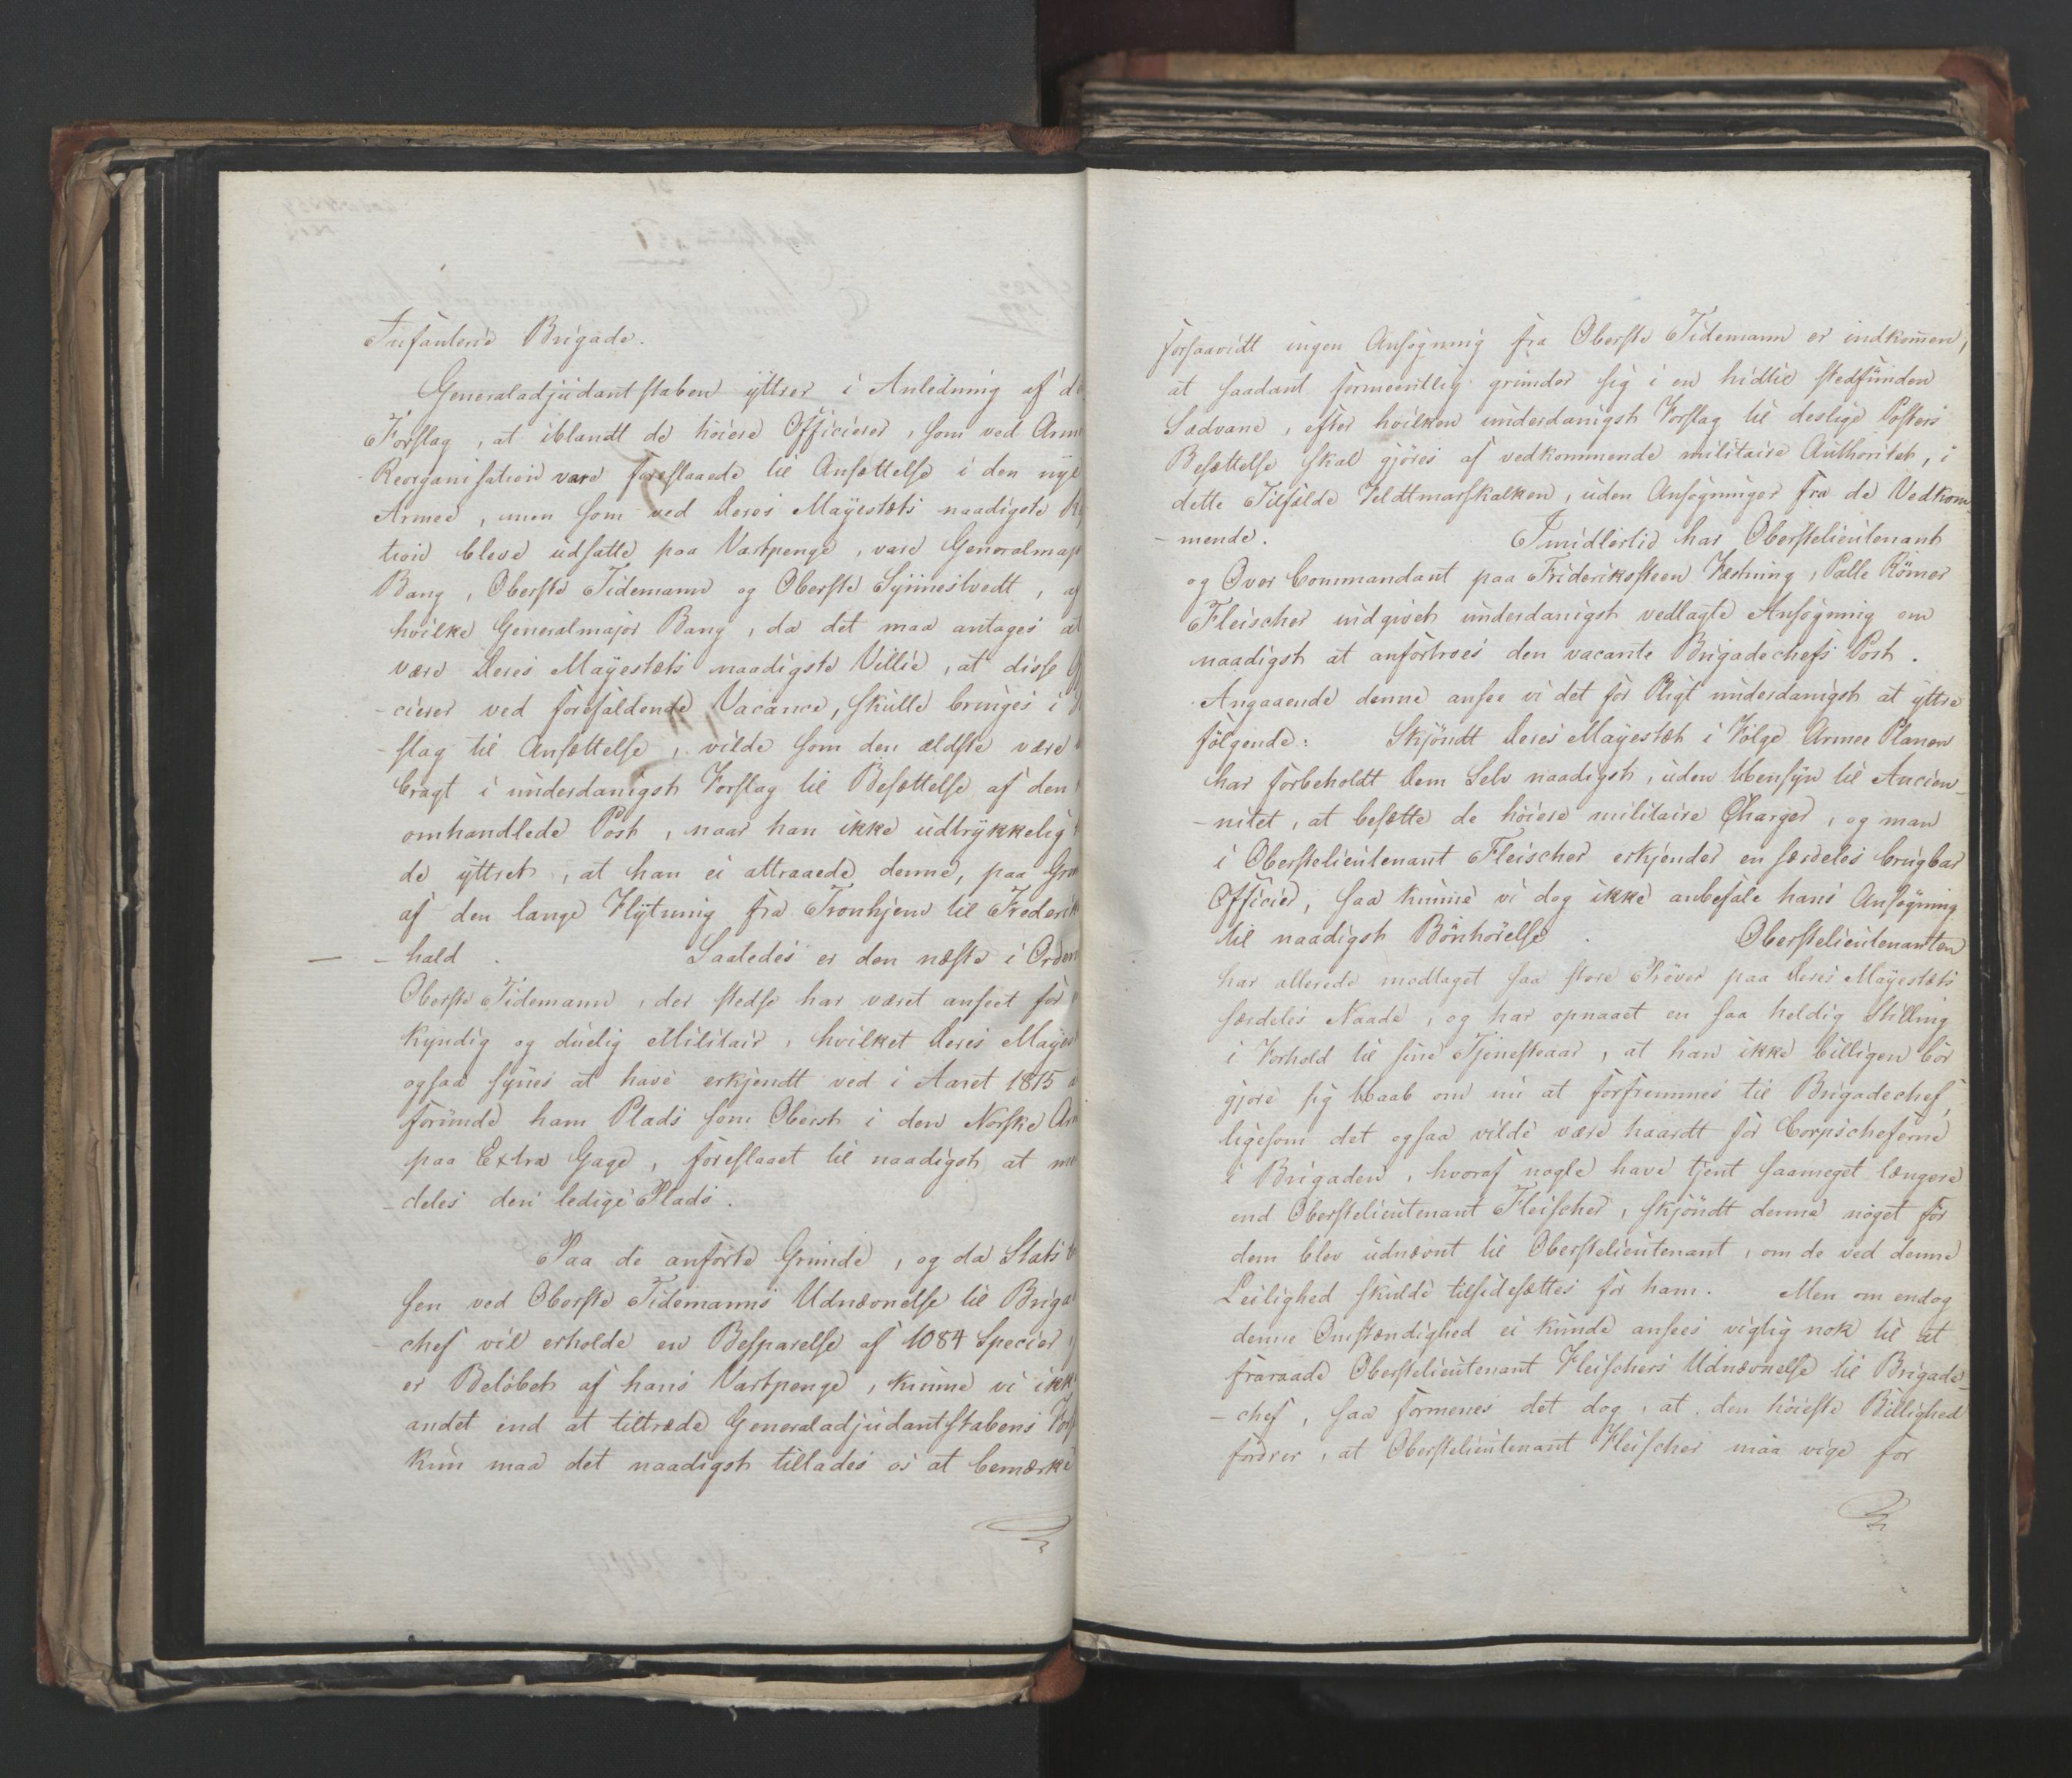 Infanterie Brigade.
Generaladjudantstaben yttrer i Anledning af
Forslag, at iblandt de höiere Officierer, som ved
Reorganisation vare foreslaaede til Ansættelse i den
Armee, men som ved Deres Mayestæts naadigste
tion bleve udsatte paa Vartpenge, vare
Bang, Oberste Tidemann og Oberste Synnestvedt, af
hvilke Generalmajor Bang, da det maa antages at
være Deres Mayestæts naadigste Villie, at disse
-cierer ved forefaldende Vacance, skulle bringes i
-slag til Ansættelse, vilde som den ældste være
bragt i underdanigst Forslag til Besættelse af den
omhandlede Post, naar han ikke udtrykkelig
de yttret, at han ei attraaede denne, paa
af den lange Flytning fra Tronhjem til
- hald. Saaledes er den næste i
Oberste Tidemann, der stedse har været anseet for
kyndig og duelig Militair, hvilket Deres
ogsaa synes at have erkjendt ved i Aaret 1815
forunde ham Plads som Oberst i den Norske
paa Extra Gage, foreslaaet til naadigst at
-deles den ledige Plads.
Paa de anförte Grunde, og da
sen ved Oberste Tidemanns Udnævnelse til
chef vil erholde en Besparelse af 1084 Specier,
er Belöbet af hans Vartpenge, kunne vi
andet end at tiltræde Generaladjudantstabens
kun maa det naadigst tillades os at bemærke
forsaavidt ingen Ansögning fra Oberste Tidemann er indkom̄en,
at saadant formeentlig grunder sig i en hidtil stedfunden
Sædvane, efter hvilken underdanigst Forslag til deslige Posters
Besættelse skal gjöres af vedkommende militaire Authoritet, i
dette Tilfælde Feldtmarskalken, uden Ansögninger fra de Vedkom-
-mende. Imidlertid har Oberstelieutenant
og Over Commandant paa Frideriksteen Fæstning, Palle Römer
Fleischer indgivet underdanigst vedlagte Ansögning om
naadigst at anfortroes den vacante Brigadechefs Post.
Angaaende denne ansee vi det for Pligt underdanigst at yttre
fölgende: Skjöndt Deres Mayestæt i Fölge Armee Planen
har forbeholdt Dem Selv naadigst, uden Hensyn til Ancien-
-nitet, at besætte de höiere militaire Charger, og man
i Oberstelieutenant Fleischer erkjender en særdeles brugbar
Officier, saa kunne vi dog ikke anbefale hans Ansögning
til naadigst Bönhörelse. Oberstelieutenanten
har allerede modtaget saa store Pröver paa Deres Mayestæts
særdeles Naade, og har opnaaet en saa heldig Stilling
i Forhold til sine Tjenesteaar, at han ikke billigen bör
gjöre sig Haab om nu at forfremmes til Brigadechef,
ligesom det ogsaa vilde være haardt for Corpscheferne
i Brigaden, hvoraf nogle have tjent saameget længere
end Oberstelieutenant Fleischer, skjöndt denne noget för
dem blev udnævnt til Oberstelieutenant, om de ved denne
Leilighed skulde tilsidesættes for ham. Men om endog
denne Omstændighed ei kunde ansees vigtig nok til at
fraraade Oberstelieutenant Fleischers Udnævnelse til Brigade-
-chef, saa formenes det dog, at den höieste Billighed
fordrer, at Oberstelieutenant Fleischer maa vige for